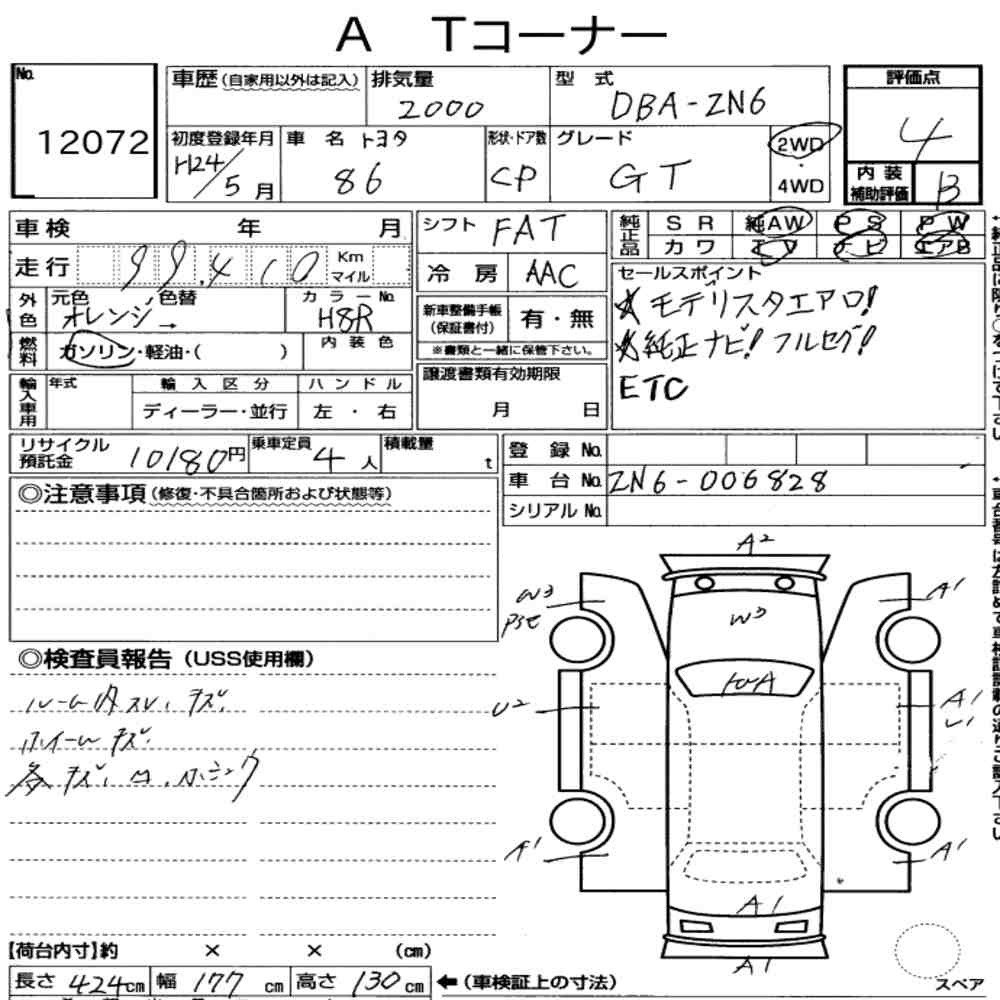 A Tコーナー
No.
12072
車歴(自家用以外は記入)
排気量
2000
型式
DBA-ZN6
評価点
4
初度登録年月
H24/5月
車名 トヨタ
86
形状・ドア数
CP
グレード
GT
2WD
・
4WD
内装
補助評価
B
車検 年 月
シフト FAT
純正品
SR 純AW PS PW
カワ エアB
走行 99,410 Km マイル
冷房 AAC
セールスポイント
モデリスタエアロ!
純正ナビ! フルセグ!
ETC
外色
元色 オレンジ
色替
カラーNo.
H8R
新車整備手帳
(保証書付)
有・無
※書類と一緒に保管下さい。
燃料
ガソリン・軽油・( )
内装色
輸入車用
年式
輸入区分
ハンドル
ディーラー・並行
左・右
譲渡書類有効期限
月 日
リサイクル
預託金
10180円
乗車定員
4人
積載量
t
登録No.
車台No. ZN6-006828
シリアルNo.
◎注意事項(修復・不具合箇所および状態等)
◎検査員報告(USS使用欄)
ルーム内スレ、キズ
ホイールキズ
各キズ、凹、
A2
W3
A1
W3
U2
A1
U1
A1
A1
A1
A1
【荷台内寸】約 × × (cm)
長さ 424cm 幅 177cm 高さ 130cm
←(車検証上の寸法)
スペア